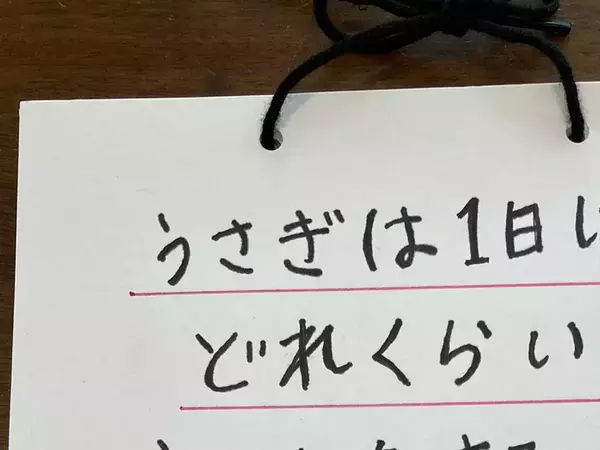 うさぎは1日
どれくらい